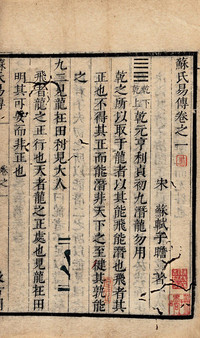 蘇氏易傳卷之一
宋 蘇軾子瞻 著
乾下乾上 乾元亨利貞初九潛龍勿用
乾之所以取于龍者以其能飛能潛也飛者其
正也不得其正而能潛非天下之至健其孰能
之
九二見龍在田利見大人
飛者龍之正行也天者龍之正處也見龍在田
明其可見而非正也
蘇氏易傳 卷之一